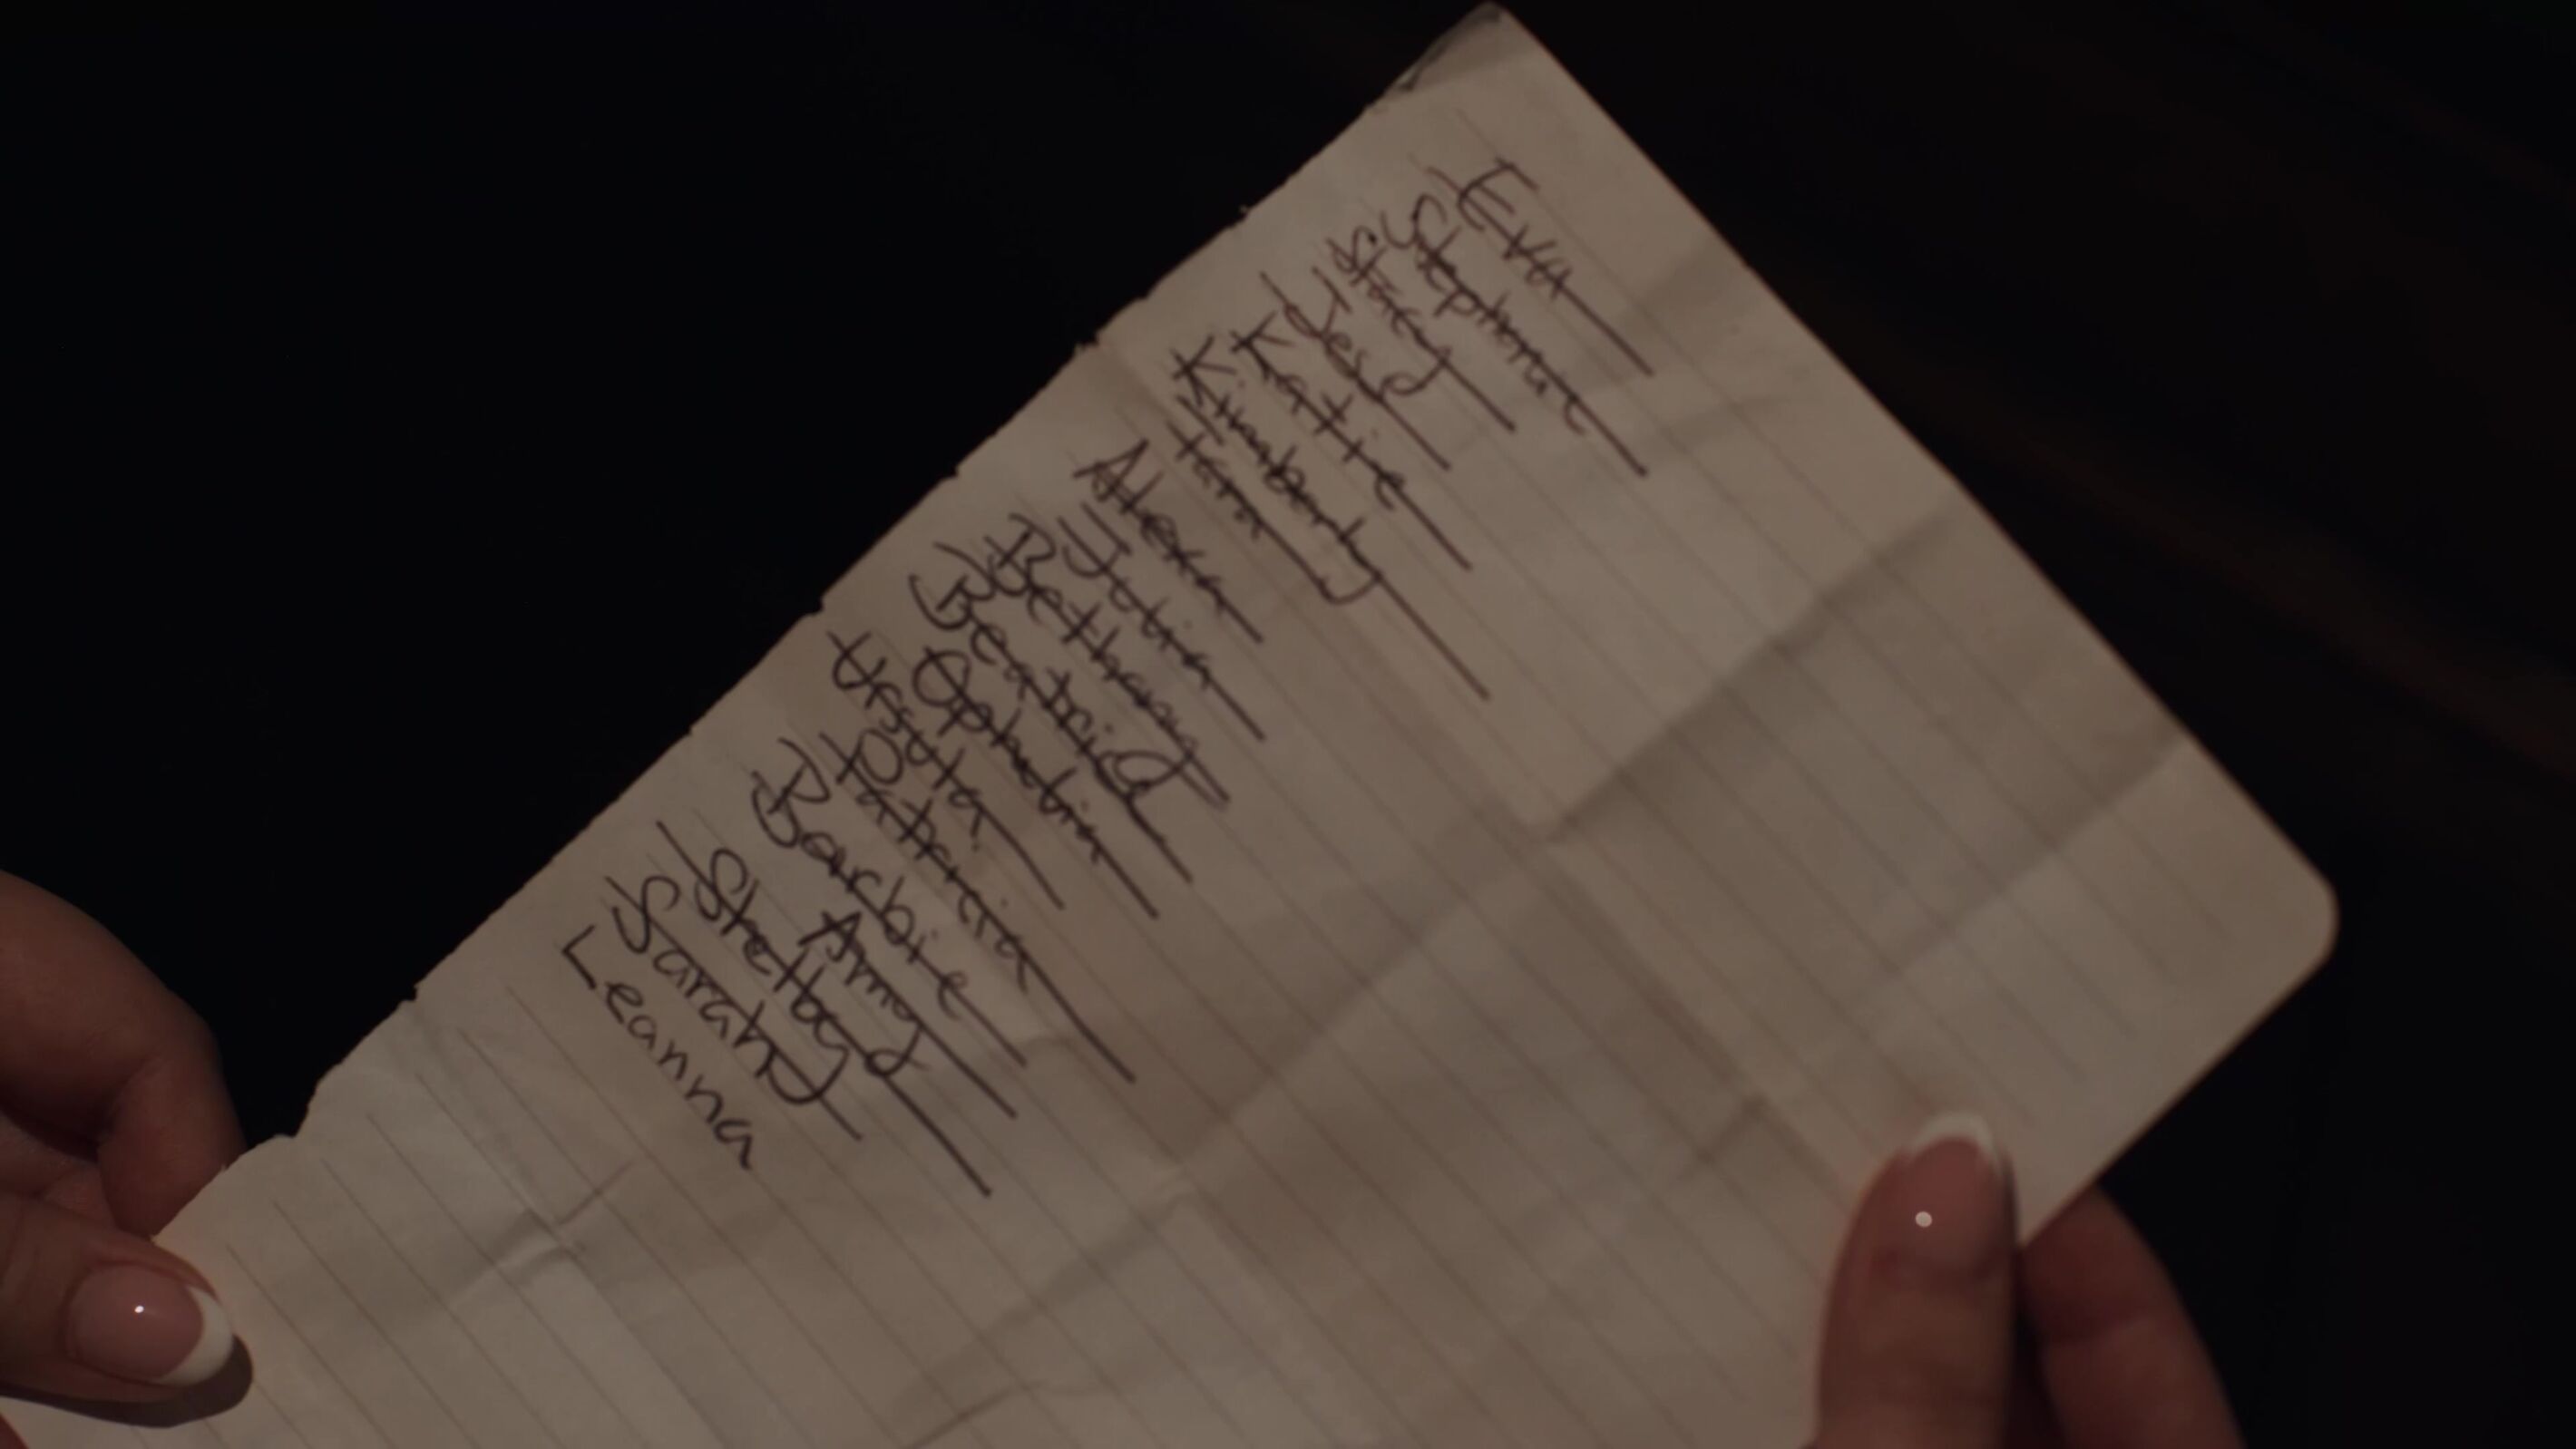 Eva
Stephanie
Stacy
Jess
Katie
Kimberly
Tara
Alexa
Julia
Bethany
Beatrice
Ophelia
Ursula
Patricia
Barbie
Amy
Shelby
Sarah
Leanna